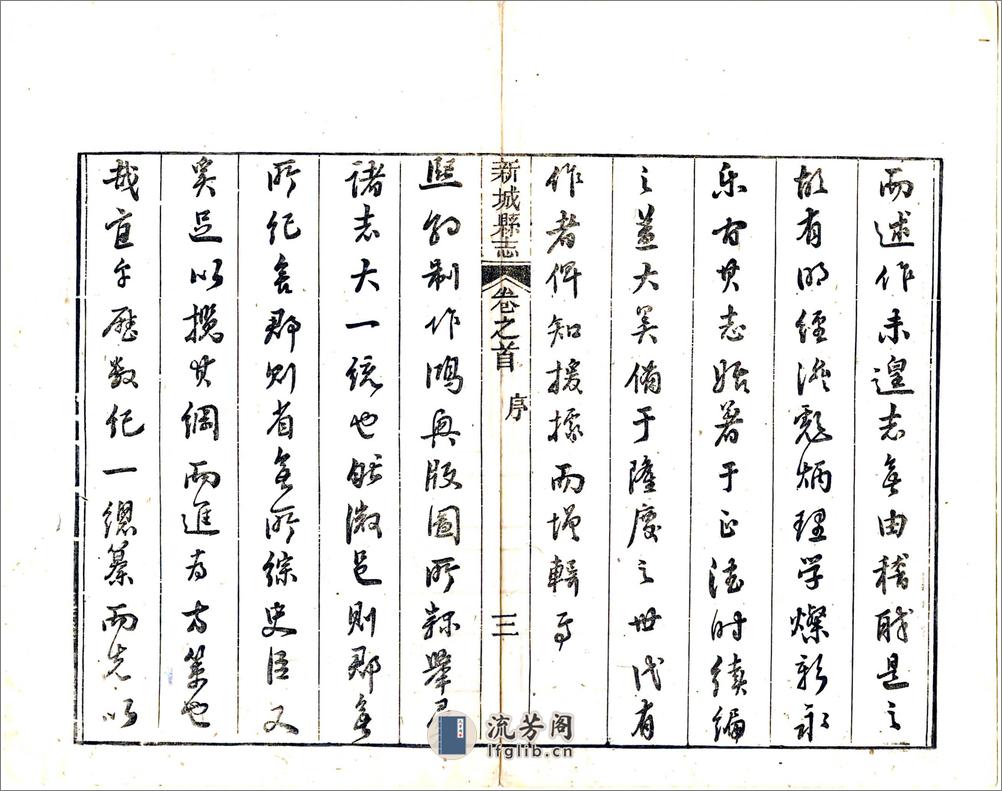 而述作未遑志無由稽職是之
故有明經濟彪炳理學燦新永
樂古其志始著于正德時續編
之蓋大美備于隆慶之世代有
作者俾知援據而增輯焉
新城縣志
卷之首
序
三
熙朝制作鴻典版圖所隸舉
諸志大一統也然微邑則郡無
所紀無郡則省無所綜史臣又
奚足以攬其綱而進為方策也
哉宜乎歷數紀一總纂而先以
流芳阁
lfglib.cn